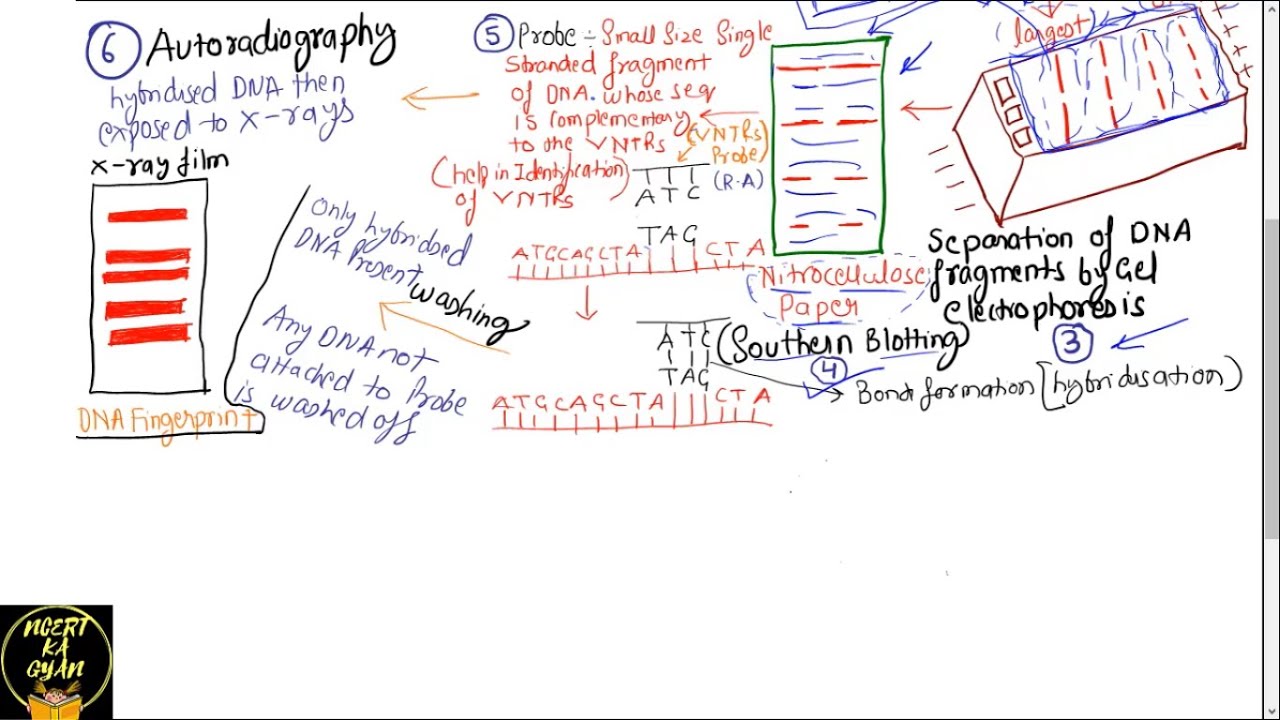 6 Autoradiography
hybridised DNA then
exposed to x-rays
x-ray film
DNA Fingerprint
Only hybridised
DNA Present
washing
Any DNA not
attached to Probe
is washed off
5 Probe :- Small Size Single
Stranded fragment
of DNA. whose seq
is complementary
to the VNTRs
(help in Identification)
of VNTRs
(VNTRs
Probe)
(R.A)
ATC
TAG
ATGCAGCTA CTA
ATC
TAG
ATGCAGCTA CTA
Nitrocellulose
Paper
(Southern Blotting)
4
Bond formation [hybridisation)
(largest)
+ + + +
Separation of DNA
fragments by Gel
Electrophoresis
3
NCERT
KA
GYAN